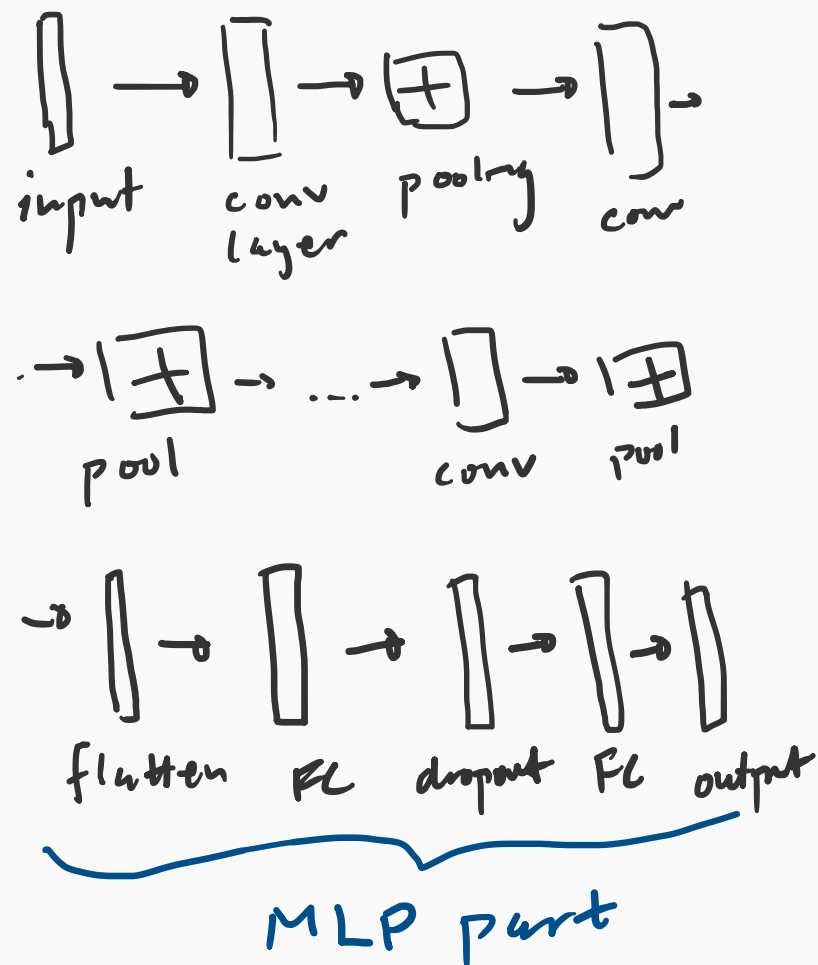 input conv pooling conv
layer
....
pool conv pool
flatten FC dropout FC output
MLP part